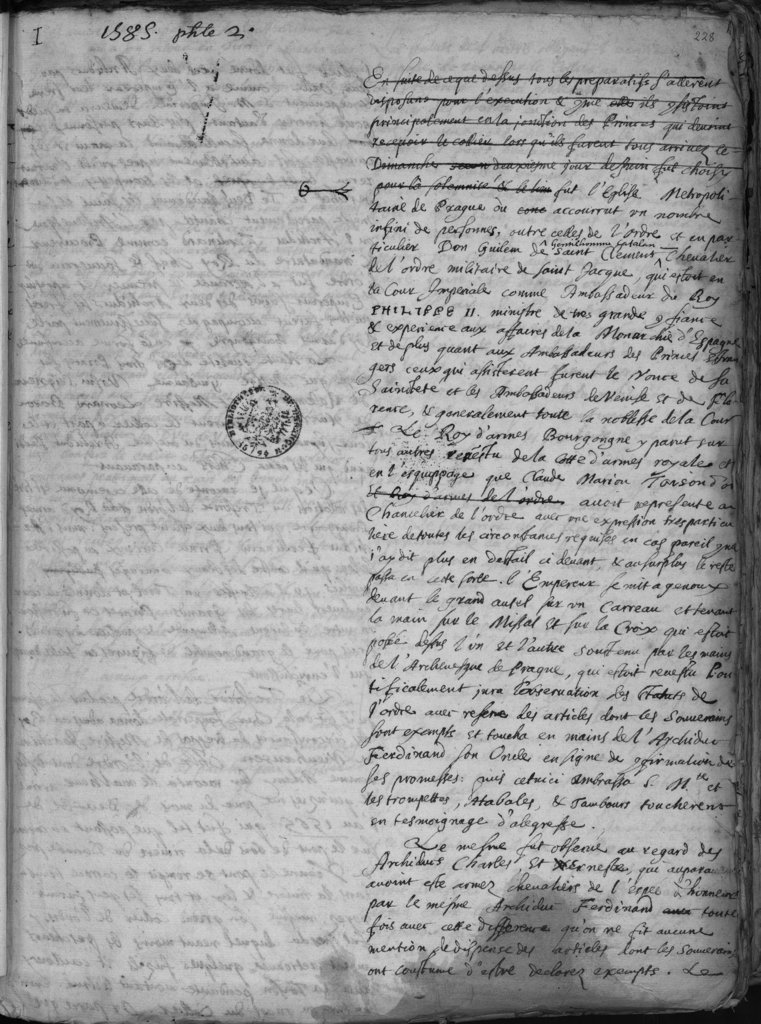 I
1585. phle 2.
228
En suite de ce que dessus tous les preparatifs s'allerent
disposans pour l'execution &
principalement en la jonction des Princes qui devoint
recepvoir le collier lors qu'ils furent tous arrivez le
Dimanche deuxiesme jour de Juin fut choisy
pour la solemnité & le lieu fut l'Eglise Metropoli
taine de Prague ou accourrut un nombre
infini de personnes, outre celles de l'ordre et en par
ticulier Don Guilem de Saint Clement gentilhomme Catalan Chevalier
de l'ordre militaire de Saint Jacque, qui estoit en
la Cour Imperiale comme Ambassadeur du Roy
PHILIPPE II. ministre de tres grande confiance
& experience aux affaires de la Monarchie d'Espagne
et de plus quant aux Ambassadeurs des Princes Estran
gers ceux qui assisterent furent le Nonce de sa
Sainteté et les Ambassadeurs de Venise et de Flo
rence, & generalement toute la noblesse de la Cour
Le Roy d'armes Bourgongne y parut sur
tous autres revestu de la Cotte d'armes royale et
en l'esquippage que Claude Marion Toison d'or
et Roy d'armes de l'ordre avoit representé au
Chancelier de l'ordre avec une expression tres particu
liere de toutes les circonstances requises en cas pareil que
j'ay dit plus en destail ci devant, & au surplus le reste
passa en cette sorte. l'Empereur se mit a genoux
devant le grand autel sur un Carreau et tenant
la main sur le Missal et sur la Croix qui estoit
posée dessus l'un et l'autre soustenu par les mains
de l'Archevesque de Prague, qui estoit revestu Pon
tificalement jura l'observation des Statuts de
l'ordre avec reserve des articles dont les Souverains
sont exempts et toucha en mains de l'Archiduc
Ferdinand son Oncle en signe de confirmation de
ses promesses: puis cetuici ambrassa S. M.te et
les trompettes, Atabales, & Tambours toucherent
en tesmoignage d'alegresse.
Le mesme fut observé au regard des
Archiducs Charles et Ernest, qui auparavant
avoint esté armez Chevaliers de l'espée d'honneur
par le mesme Archiduc Ferdinand toute
fois avec cette difference qu'on ne fit aucune
mention de dispense des articles dont les Souverains
ont coustume d'estre declarez exempts. Le